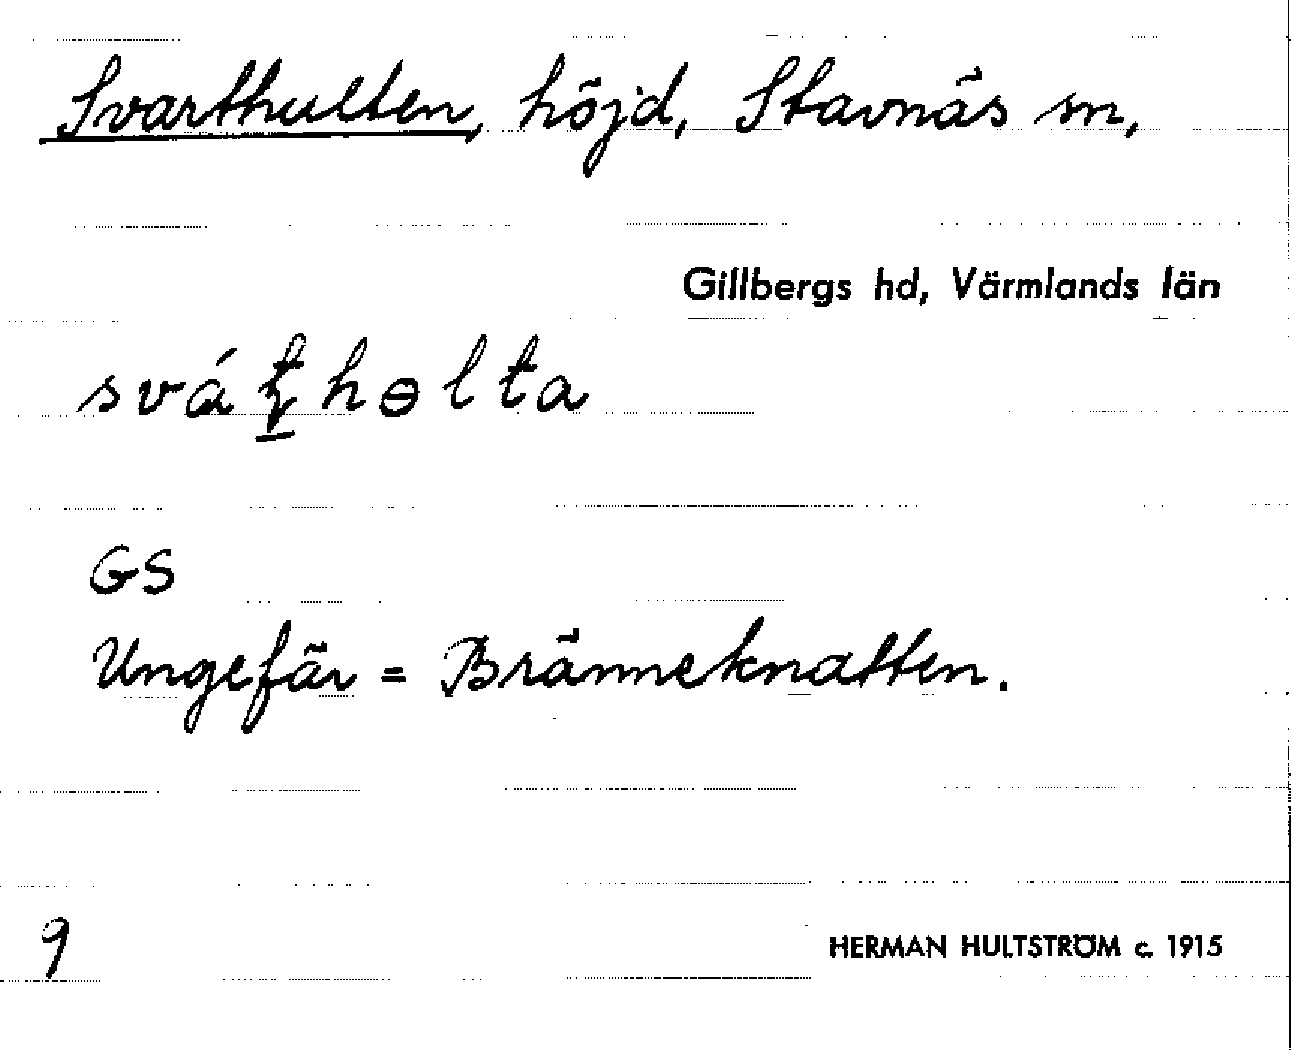 Svarthulten, höjd, Stavnäs sn,
Gillbergs hd, Värmlands län
sváʈhɵlta
GS
Ungefär = Bränneknatten.
9
HERMAN HULTSTRÖM c. 1915